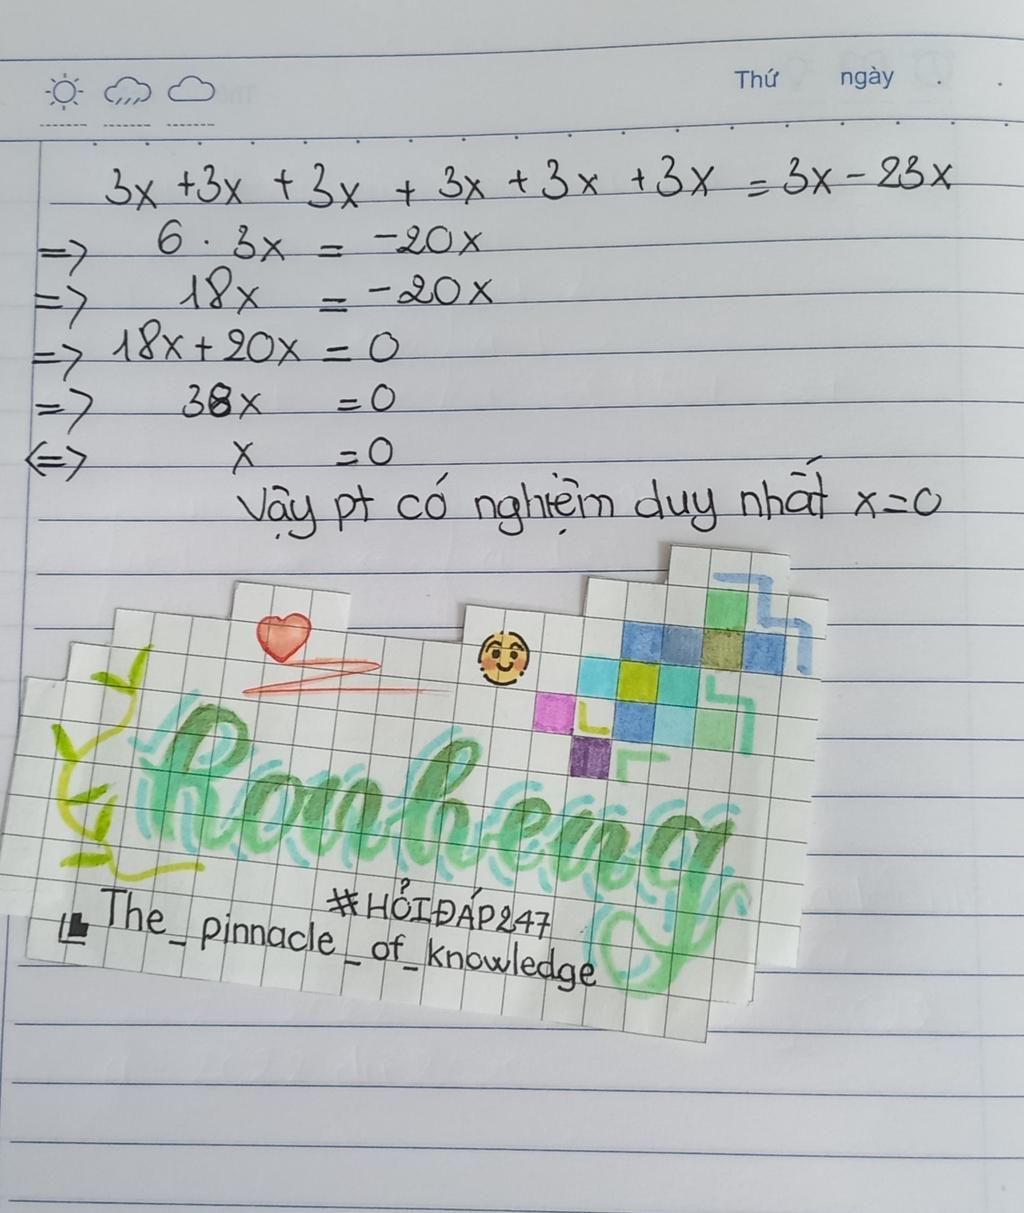 Thứ ngày
3x + 3x + 3x + 3x + 3x + 3x = 3x - 23x
=> 6 . 3x = -20x
=> 18x = -20x
=> 18x + 20x = 0
=> 38x = 0
<=> x = 0
Vậy pt có nghiệm duy nhất x=0
Ronheng
#HỎIĐÁP247
The_pinnacle_of_knowledge